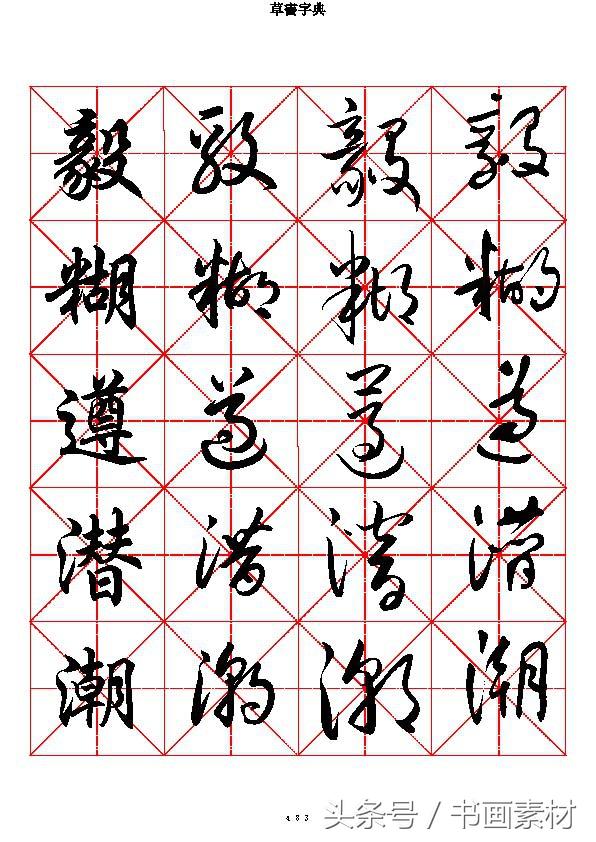 草書字典
毅 毅 毅 毅
糊 糊 糊 糊
遵 遵 遵 遵
潜 潜 潜 潜
潮 潮 潮 潮
483
头条号 / 书画素材